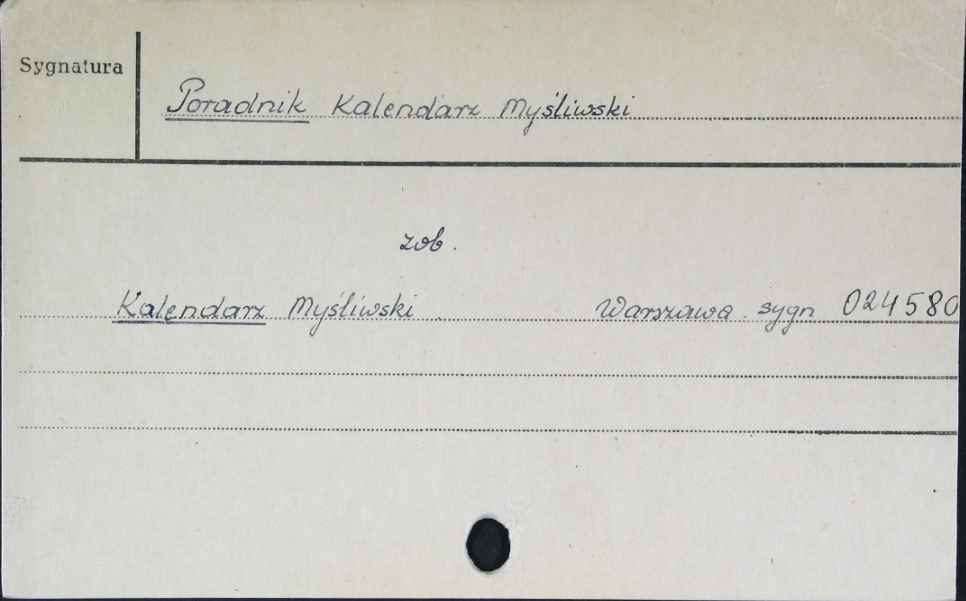 Sygnatura
Poradnik Kalendarz Myśliwski
zob.
Kalendarz Myśliwski. Warszawa. sygn 024580